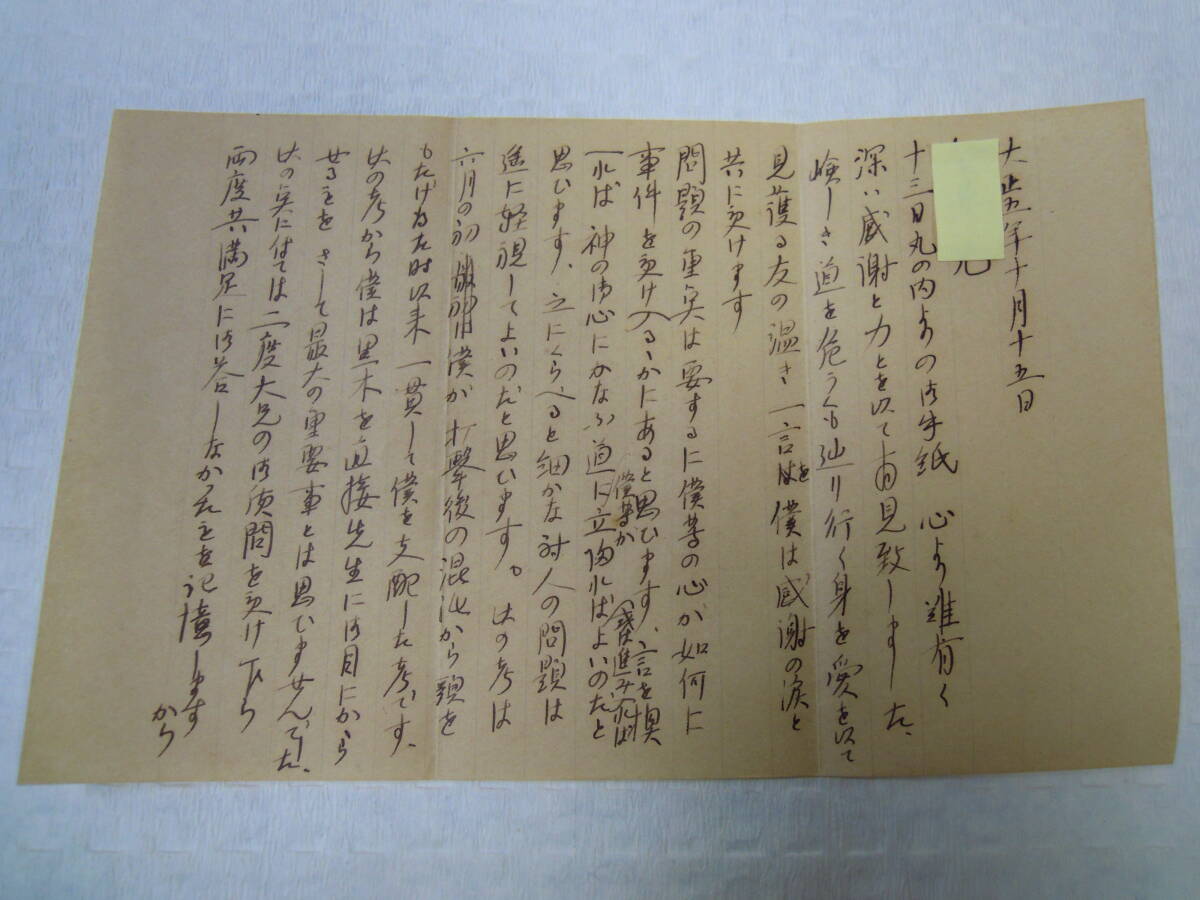 大正五年十月十五日
兄
十三日丸の内よりの御手紙 心より難有く
深い感謝と力とを以て拝見致しました、
嶮しき道を危うくも辿り行く身を愛を以て
見護る友の温き一言を僕は感謝の涙と
共に受けます
問題の重点は要するに僕等の心が如何に
事件を受け入るゝかにあると思ひます、言を換
れば神の御心にかなふ道に僕等が立帰ればよいのだと
思ひます、之にくらべると細かな対人の問題は
遥に軽視してよいのだと思ひます。此の考は
六月の初 僕が打撃後の混沌から頭を
もたげ得た時以来一貫して僕を支配した考です、
此の考から僕は黒木を直接先生に御目にから
せることをさして最大の重要事とは思ひませんでした、
此の点に付ては二度大兄の御質問を受け乍ら
両度共満足に御答しなかったことを記憶しますから